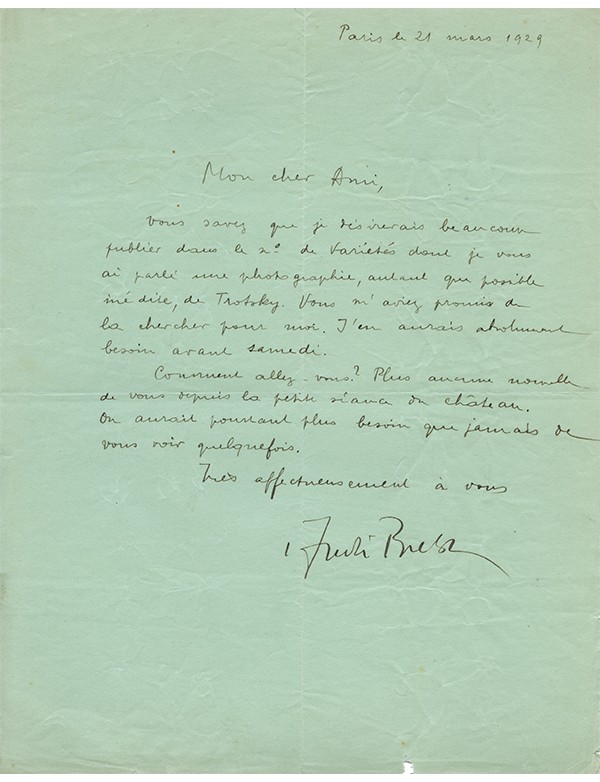 Paris le 21 mars 1929
Mon cher Ami,
Vous savez que je désirerais beaucoup
publier dans le nº de Variétés dont je vous
ai parlé une photographie, autant que possible
inédite, de Trotsky. Vous m'aviez promis de
la chercher pour moi. J'en aurais absolument
besoin avant samedi.
Comment allez-vous? Plus aucune nouvelle
de vous depuis la petite séance du château.
On aurait pourtant plus besoin que jamais de
vous voir quelquefois.
Très affectueusement à vous
André Breton